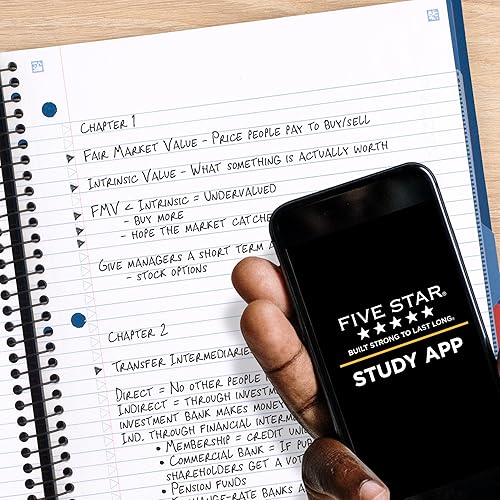 CHAPTER 1
FAIR MARKET VALUE - PRICE PEOPLE PAY TO BUY/SELL
INTRINSIC VALUE - WHAT SOMETHING IS ACTUALLY WORTH
FMV < INTRINSIC = UNDERVALUED
- BUY MORE
- HOPE THE MARKET CATCHE
GIVE MANAGERS A SHORT TERM
- STOCK OPTIONS
CHAPTER 2
TRANSFER INTERMEDIARIE
DIRECT = NO OTHER PEOPLE
INDIRECT = THROUGH INVESTME
INVESTMENT BANK MAKES MONEY
IND. THROUGH FINANCIAL INTERM
• MEMBERSHIP = CREDIT UNI
• COMMERCIAL BANK = IF PU
SHAREHOLDERS GET A VOT
• PENSION FUNDS
-RATE BANKS A
FIVE STAR®
★★★★★
BUILT STRONG TO LAST LONG®
STUDY APP